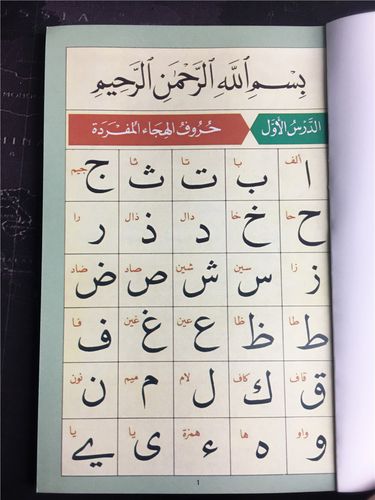 بِسْمِ اللَّهِ الرَّحْمَٰنِ الرَّحِيمِ
الدَّرْسُ الْأَوَّل حُرُوفُ الهِجَاءِ المُفْرَدَة
ألف با تا ثا جيم
ا ب ت ث ج
حا خا دال ذال را
ح خ د ذ ر
زا سين شين صاد ضاد
ز س ش ص ض
طا ظا عين غين فا
ط ظ ع غ ف
قاف كاف لام ميم نون
ق ك ل م ن
واو ها همزة يا يا
و ه ء ى ے
1